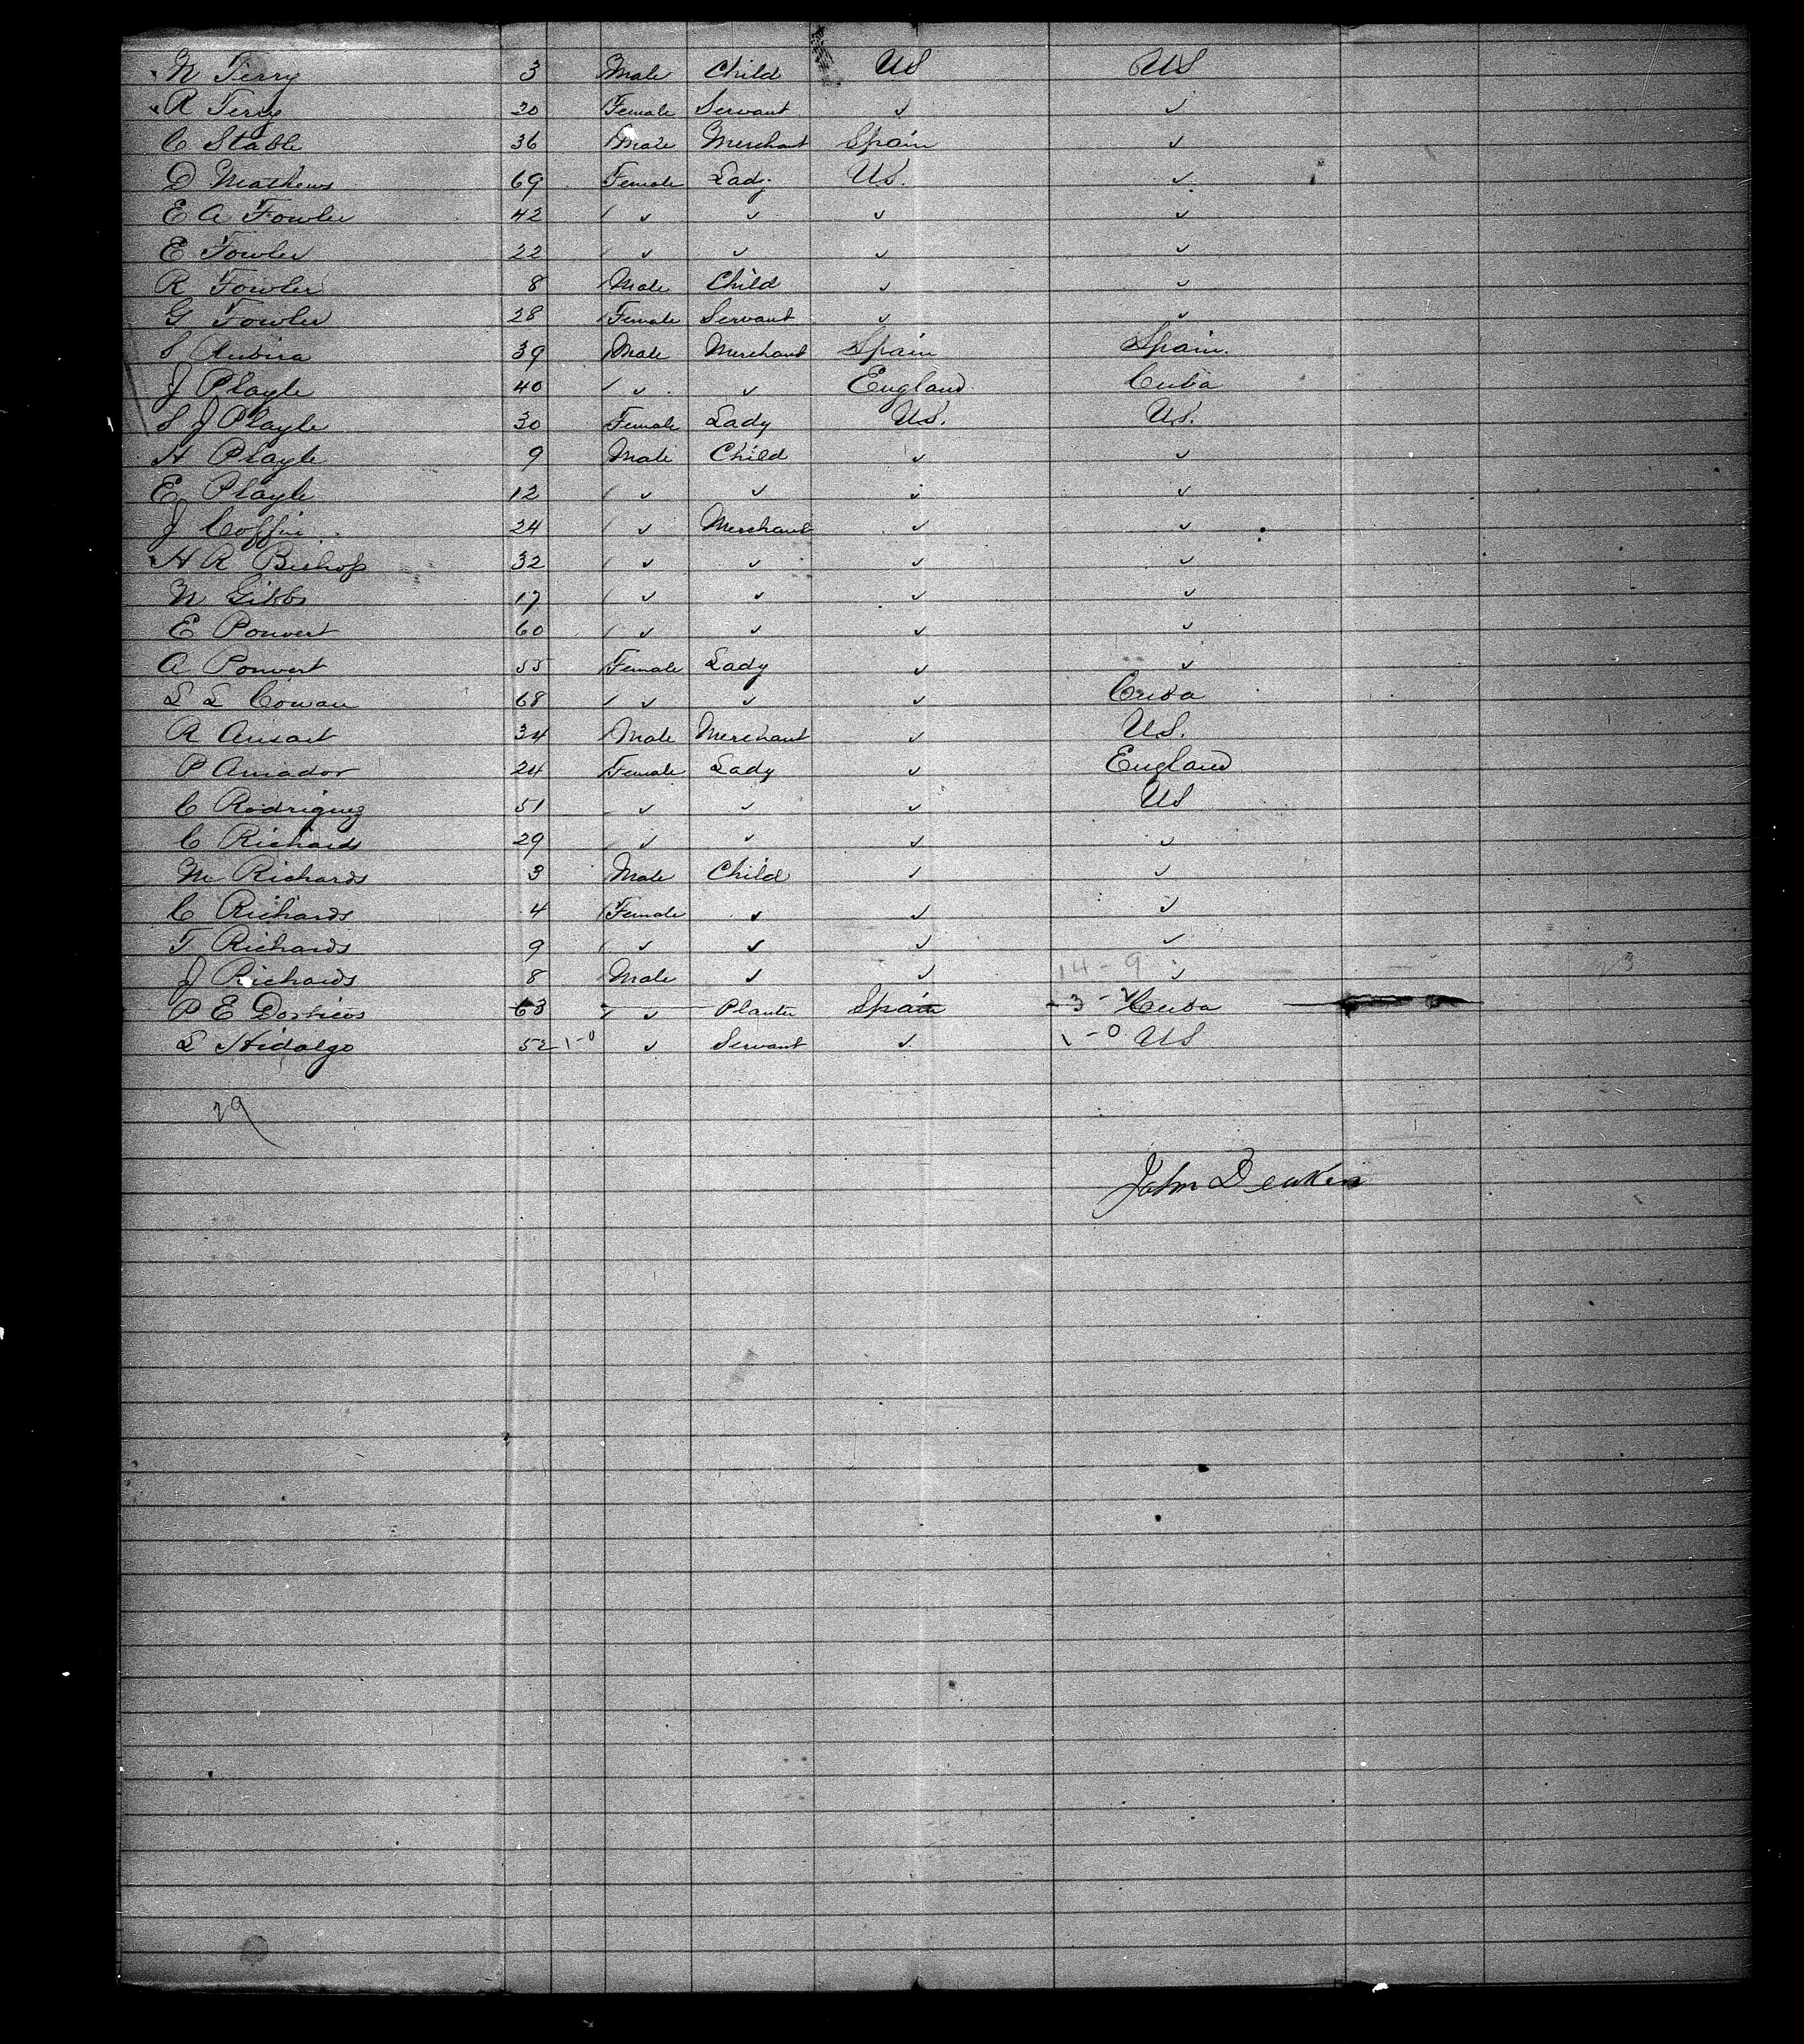 N Terry 3 Male Child US US
R Terry 20 Female Servant ✓ ✓
C Stable 36 Male Merchant Spain ✓
D Mathews 69 Female Lady US. ✓
E A Fowler 42 ✓ ✓ ✓ ✓
E Fowler 22 ✓ ✓ ✓ ✓
R Fowler 8 Male Child ✓ ✓
G Fowler 28 Female Servant ✓ ✓
S Rubira 39 Male Merchant Spain Spain.
J Playle 40 ✓ ✓ England Cuba
S J Playle 30 Female Lady US. US.
H Playle 9 Male Child ✓ ✓
E Playle 12 ✓ ✓ ✓ ✓
J Coffin 24 ✓ Merchant ✓ ✓
H R Bishop 32 ✓ ✓ ✓ ✓
N Gibbs 17 ✓ ✓ ✓ ✓
E Pouvert 60 ✓ ✓ ✓ ✓
A Pouvert 55 Female Lady ✓ ✓
L L Cowan 68 ✓ ✓ ✓ Cuba
R 34 Male Merchant ✓ US.
P Amador 24 Female Lady ✓ England
C Rodriguez 51 ✓ ✓ ✓ US
C Richards 29 ✓ ✓ ✓ ✓
M Richards 3 Male Child ✓ ✓
C Richards 4 Female ✓ ✓ ✓
T Richards 9 ✓ ✓ ✓ ✓
J Richards 8 Male ✓ ✓ 14-9 ✓
P E Dorticos 63 ✓ Planter Spain Cuba
L Hidalgo 52 1-0 ✓ Servant ✓ 1-0 US
29
John Deaken